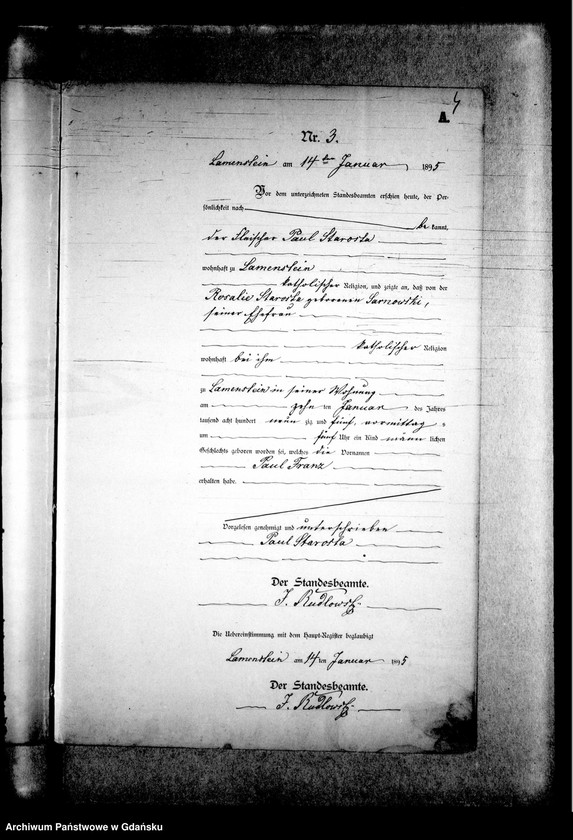 4
A.
Nr. 3.
Lamenstein am 14ten Januar 1895
Vor dem unterzeichneten Standesbeamten erschien heute, der Per-
sönlichkeit nach
be kannt,
der Fleischer Paul Starosta
wohnhaft zu Lamenstein
katholischer Religion, und zeigte an, daß von der
Rosalie Starosta geborenen Sarnowski,
seiner Ehefrau
katholischer Religion
wohnhaft bei ihm
zu Lamenstein in seiner Wohnung
am zehn ten Januar des Jahres
tausend acht hundert neun zig und fünf, vormittag s
um fünf Uhr ein Kind männ lichen
Geschlechts geboren worden sei, welches die Vornamen
Paul Franz
erhalten habe.
Vorgelesen genehmigt und unterschrieben
Paul Starosta
Der Standesbeamte.
Die Uebereinstimmung mit dem Haupt-Register beglaubigt
Lamenstein am 14 ten Januar 1895
Der Standesbeamte.
Archiwum Państwowe w Gdańsku